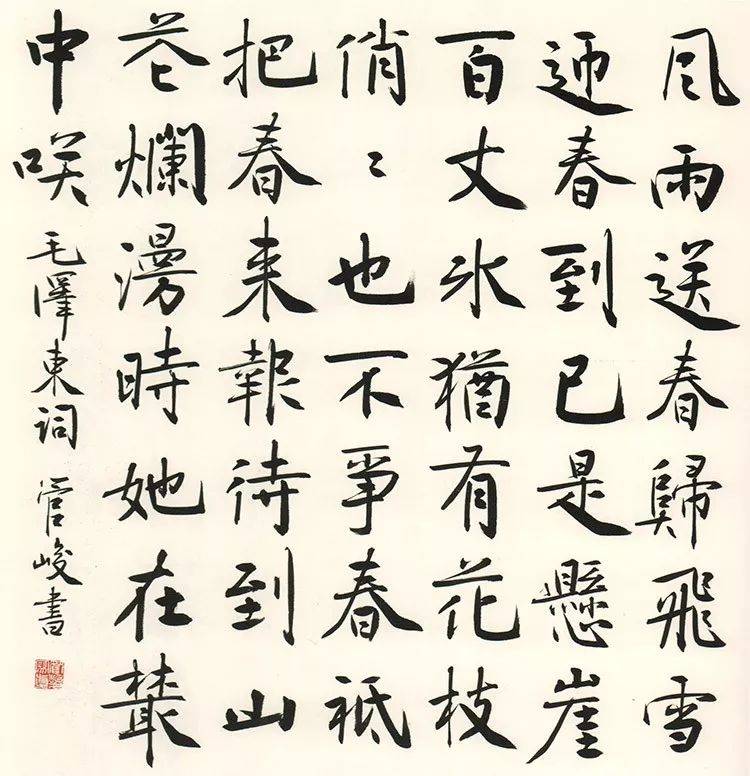 風雨送春歸飛雪
迎春到已是懸崖
百丈冰猶有花枝
俏〻也不爭春祗
把春来報待到山
花爛漫時她在叢
中咲
毛澤東詞 管峻書